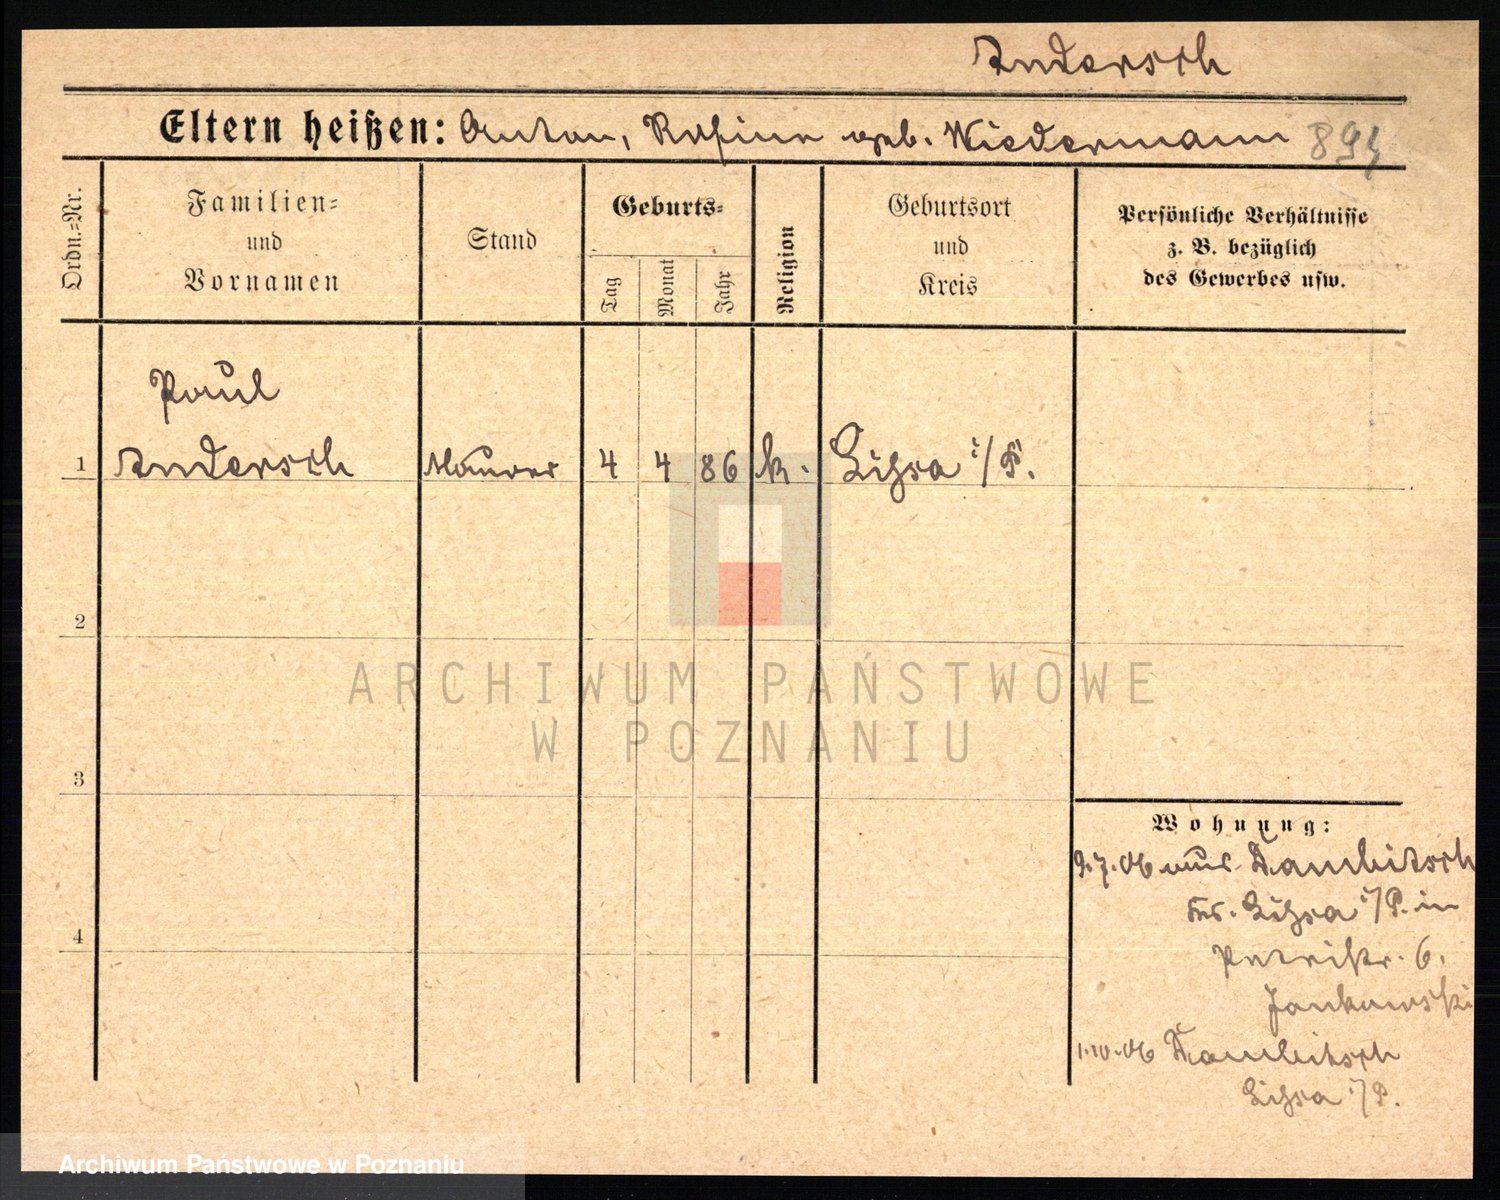 Andersch
Eltern heißen: Anton, Rosina geb. Wiedermann
Ordn.-Nr.
Familien-
und
Vornamen
Stand
Geburts-
Tag
Monat
Jahr
Religion
Geburtsort
und
Kreis
Persönliche Verhältnisse
z. B. bezüglich
des Gewerbes usw.
Paul
1 Andersch Maurer 4 4 86 k. Lissa i/P.
2
3
4
Wohnung:
9.7.06 aus
Lissa i/P. in
Petristr. 6.
Jankowski
1.10.06
Lissa i/P.
ARCHIWUM PAŃSTWOWE
W POZNANIU
Archiwum Państwowe w Poznaniu